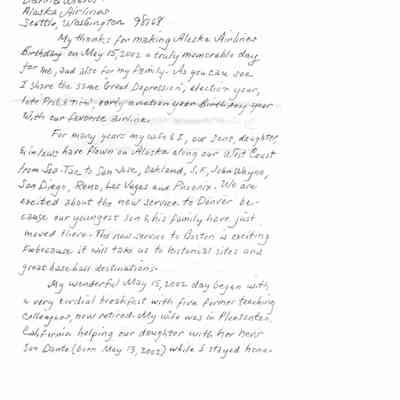 Alaska Airlines
Seattle, Washington 98168
My thanks for making Alaska Airlines
Birthday on May 15, 2002 a truly memorable day
for me, and also for my family. As you can see
I share the same Great Depression, election year,
late Prohibition, early aviation year Birthday year
with our favorite airline.
For many years my wife & I, our sons, daughter,
& inlaws have flown on Alaska along our West Coast
from Sea-Tac to San Jose, Oakland, S.F., John Wayne,
San Diego, Reno, Las Vegas and Phoenix. We are
excited about the new service to Denver be-
cause our youngest son & his family have just
moved there. The new service to Boston is exciting
because it will take us to historical sites and
great baseball destinations.
My wonderful May 15, 2002 day began with
a very cordial breakfast with five former teaching
colleagues, now retired. My wife was in Pleasanton,
California helping our daughter with her new
son Dante (born May 13, 2002) while I stayed home.